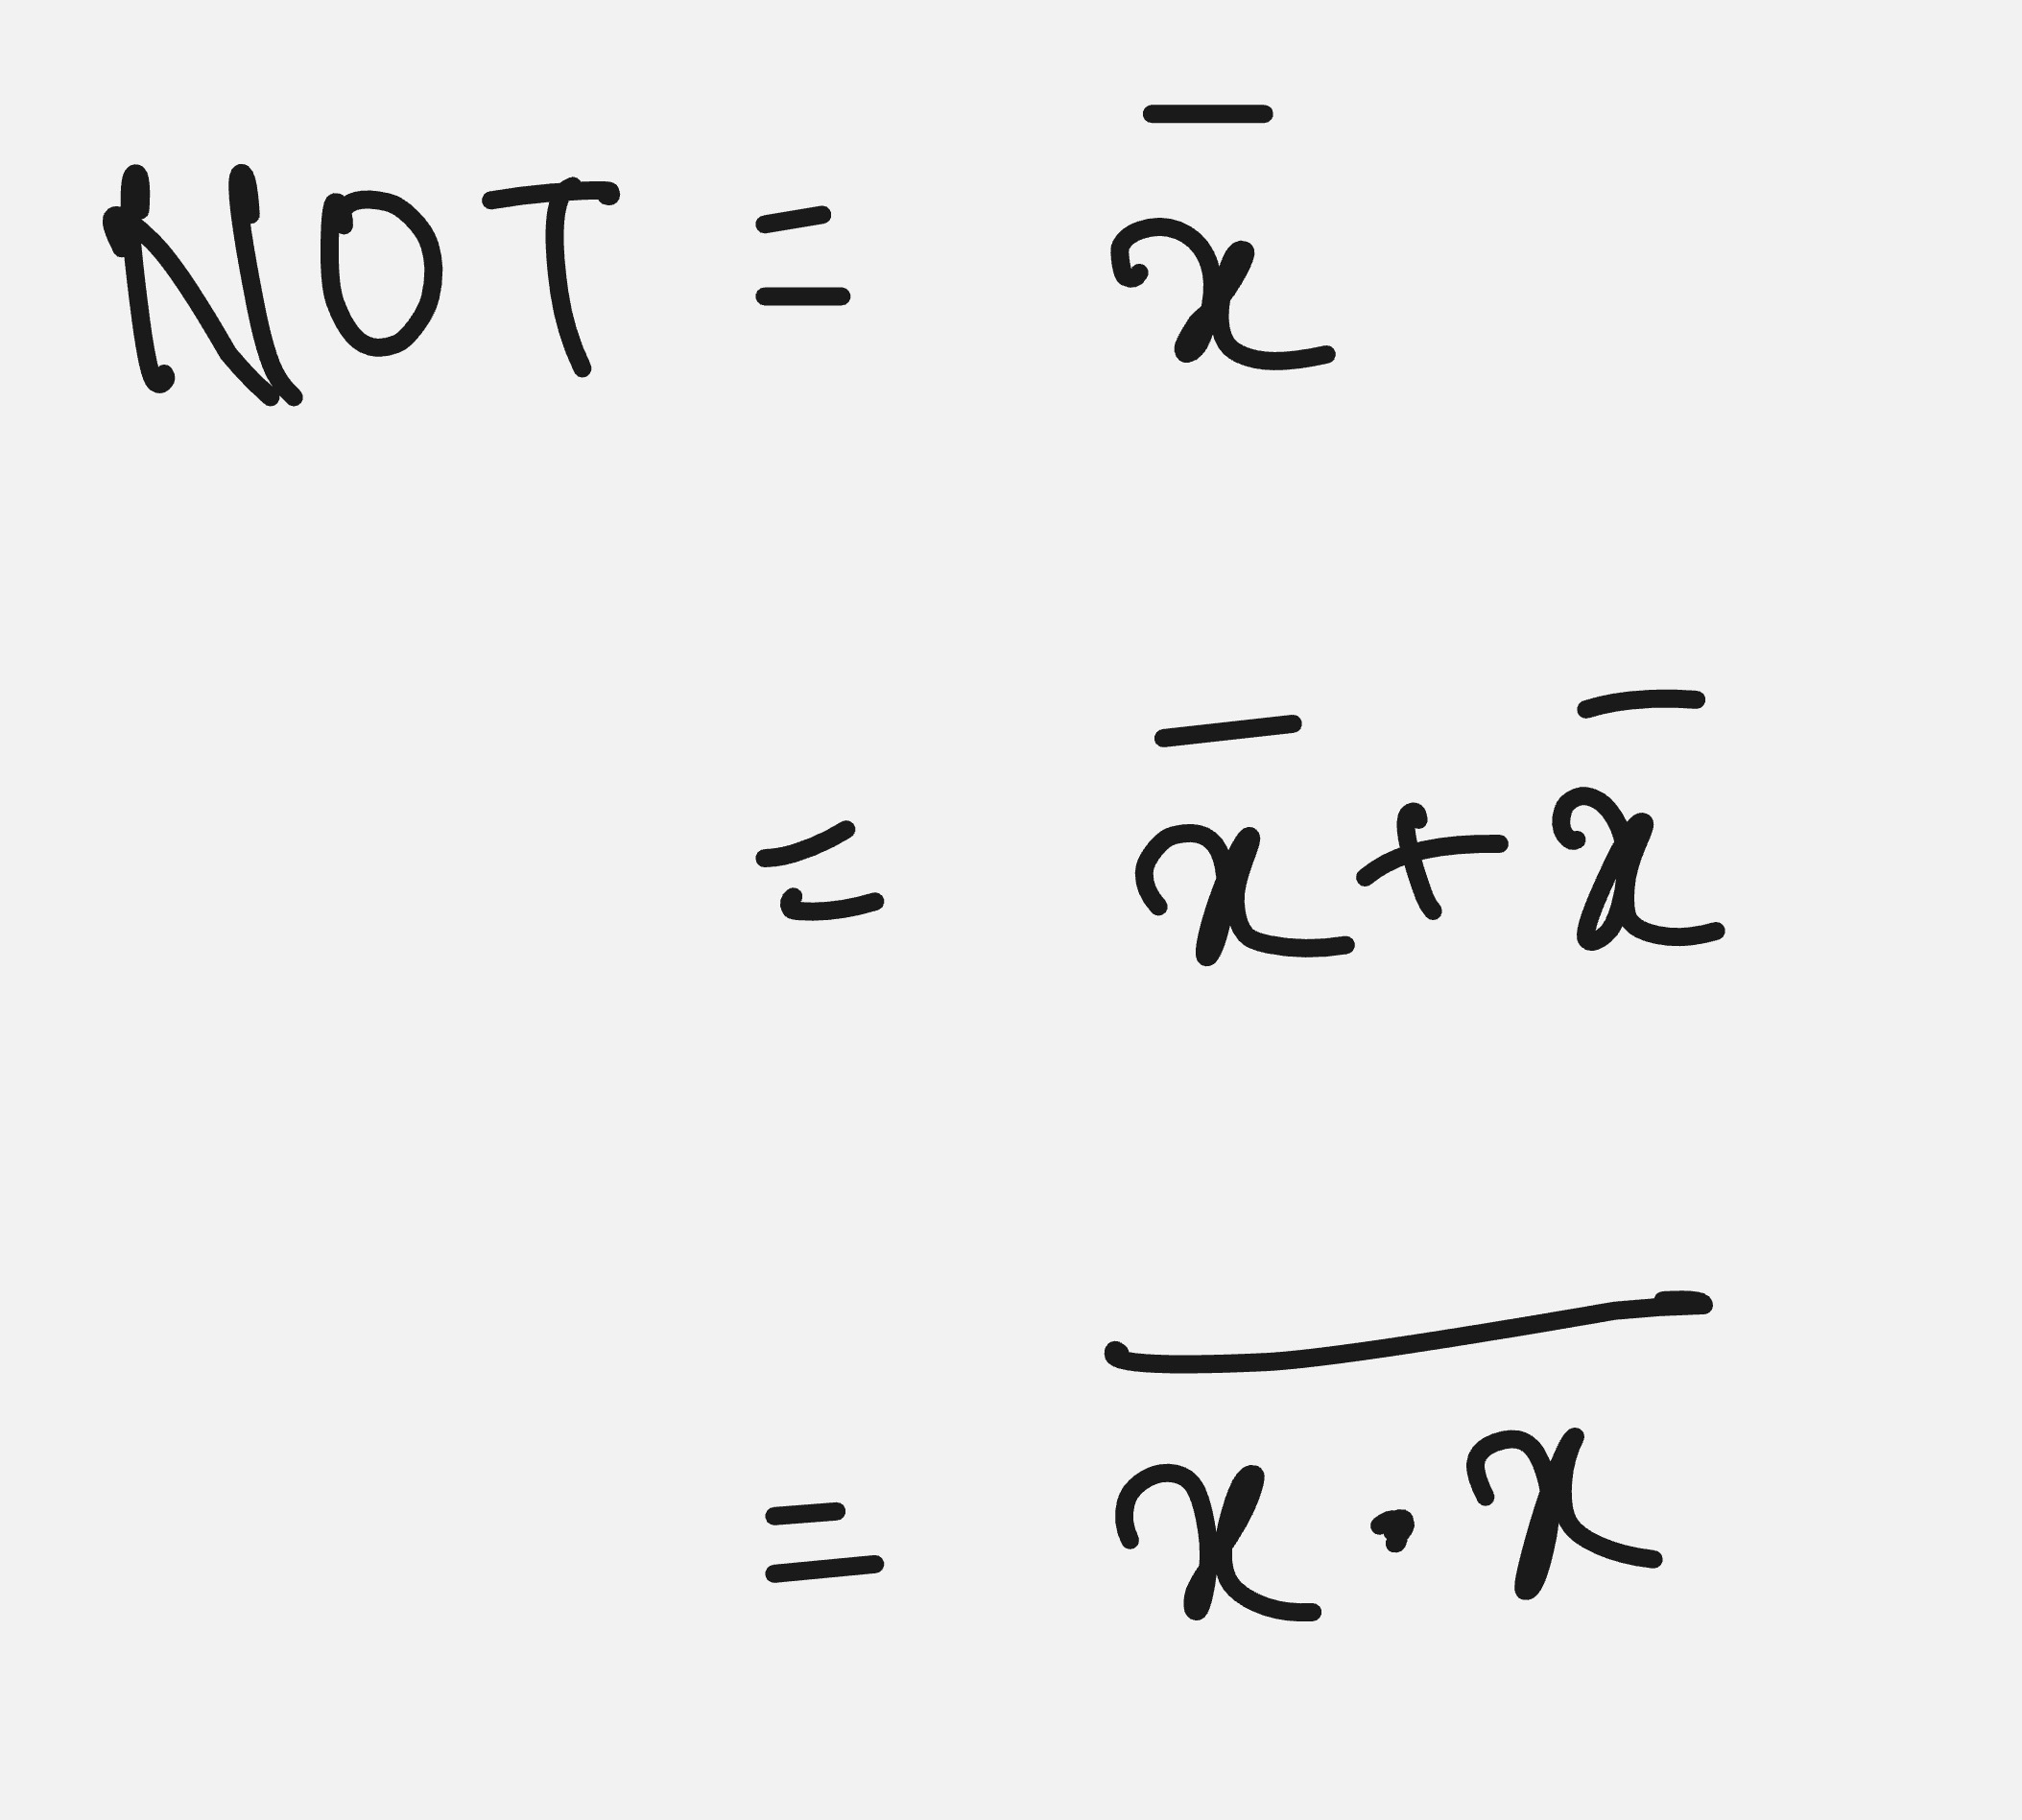 NOT = x̅
= x̅ + x̅
= \overline{x · x}